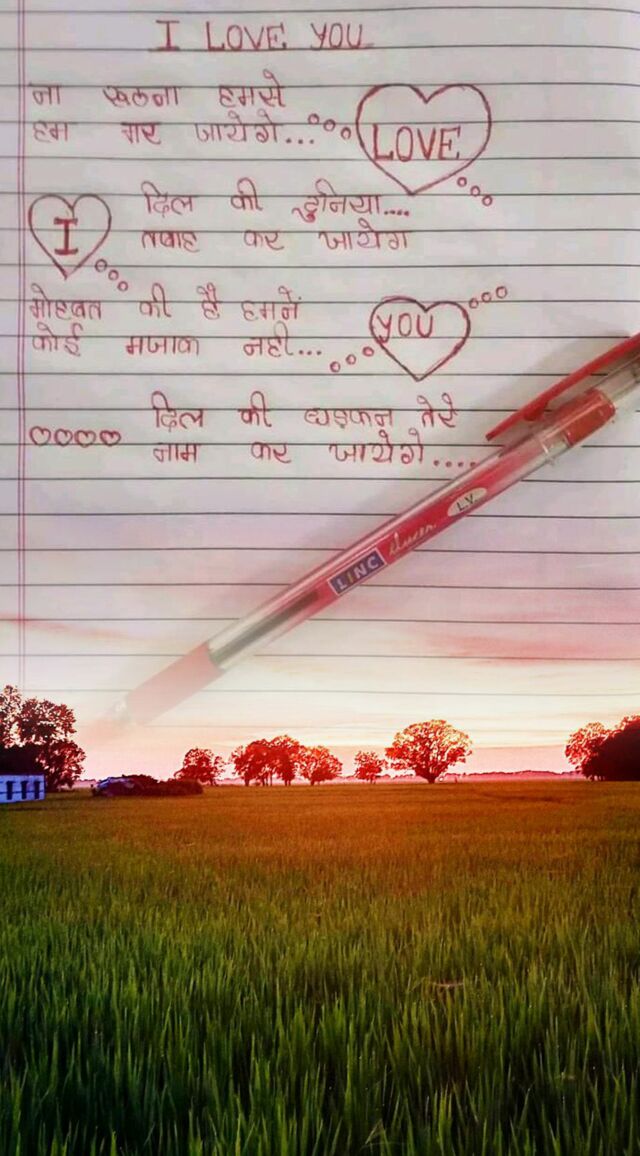 I LOVE YOU
ना खलना हमसे
हम मर जायेगे...
LOVE
दिल की दुनिया....
I
तबाह कर जायेग
मोहबत की है हमनें
YOU
कोई मजाक नही...
दिल की धड़कन तेरे
नाम कर जायेगे....
LINC LV